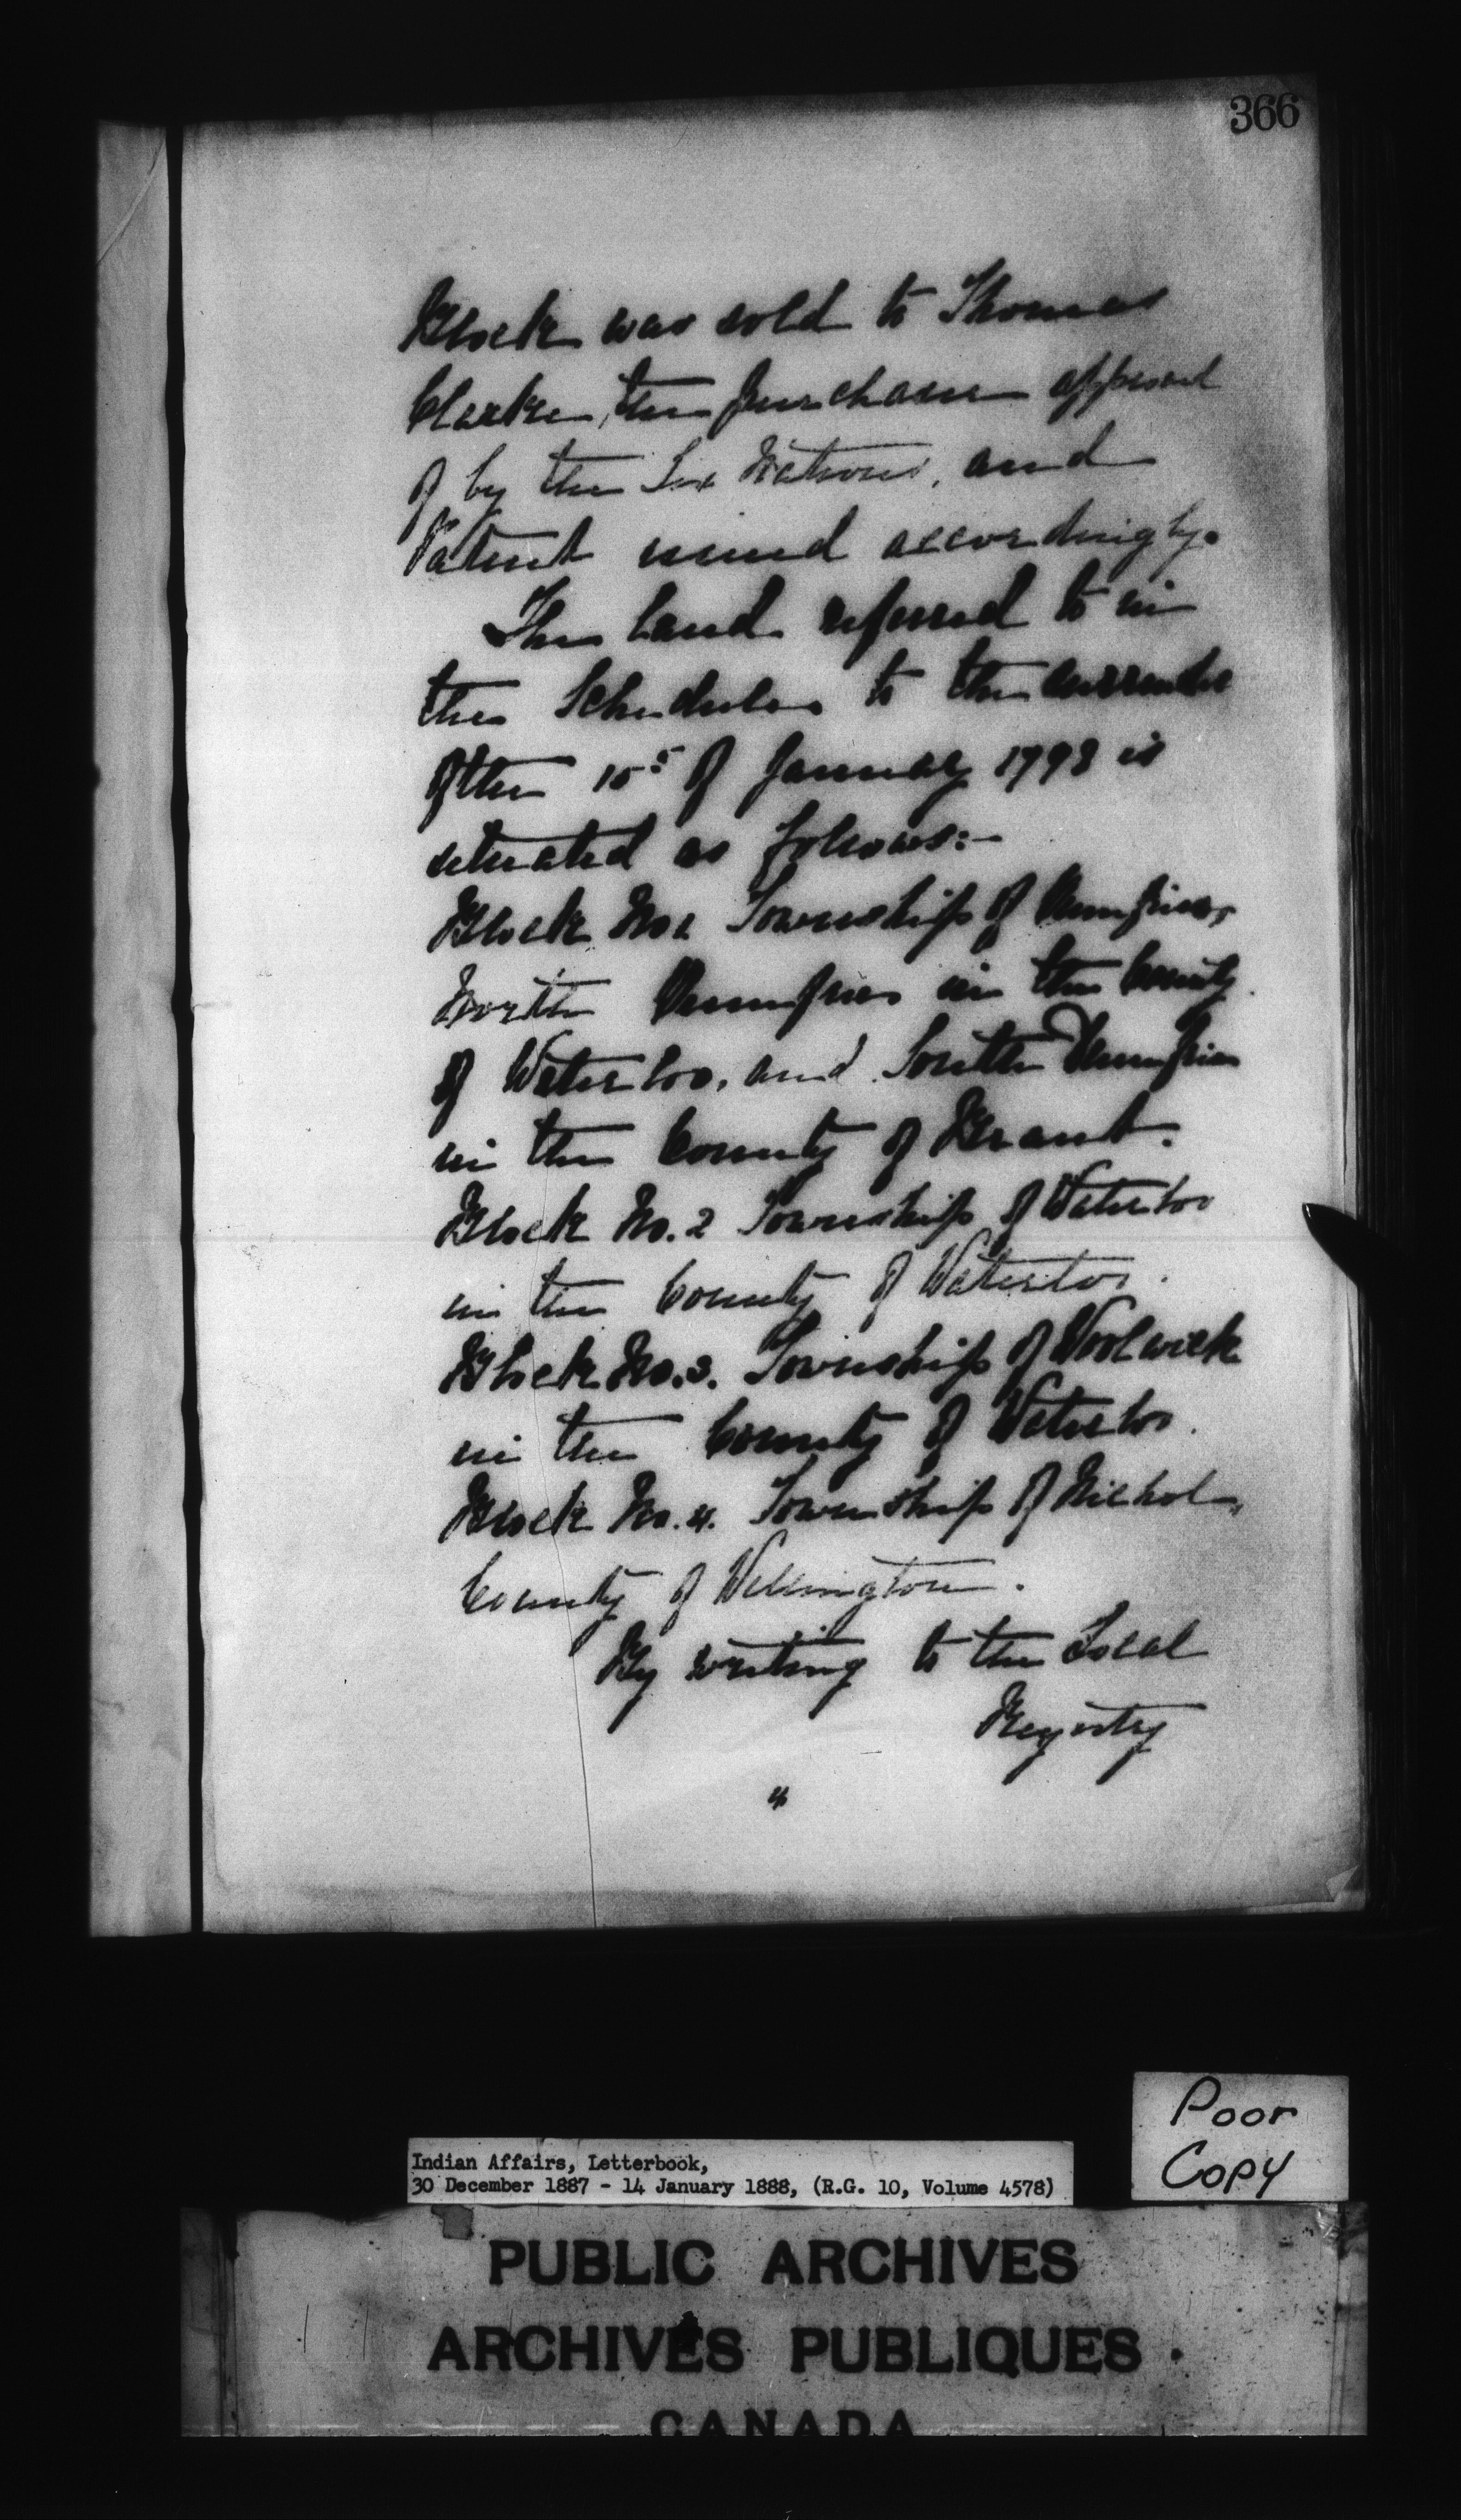 366
Block was sold to Thomas
Clarke, the purchase approved
of by the Six Nations, and
Patent issued accordingly.
The land referred to in
the Schedule to the surrender
of the 15th of January 1798 is
situated as follows:-
Block No 1 Township of Dumfries,
North Dumfries in the County
of Waterloo, and South Dumfries
in the County of Brant.
Block No. 2 Township of Waterloo
in the County of Waterloo.
Block No. 3. Township of Woolwich
in the County of Waterloo.
Block No. 4. Township of Nichol,
County of Wellington.
By writing to the Local
Registry
4
Poor
Copy
Indian Affairs, Letterbook,
30 December 1887 - 14 January 1888, (R.G. 10, Volume 4578)
PUBLIC ARCHIVES
ARCHIVES PUBLIQUES
CANADA